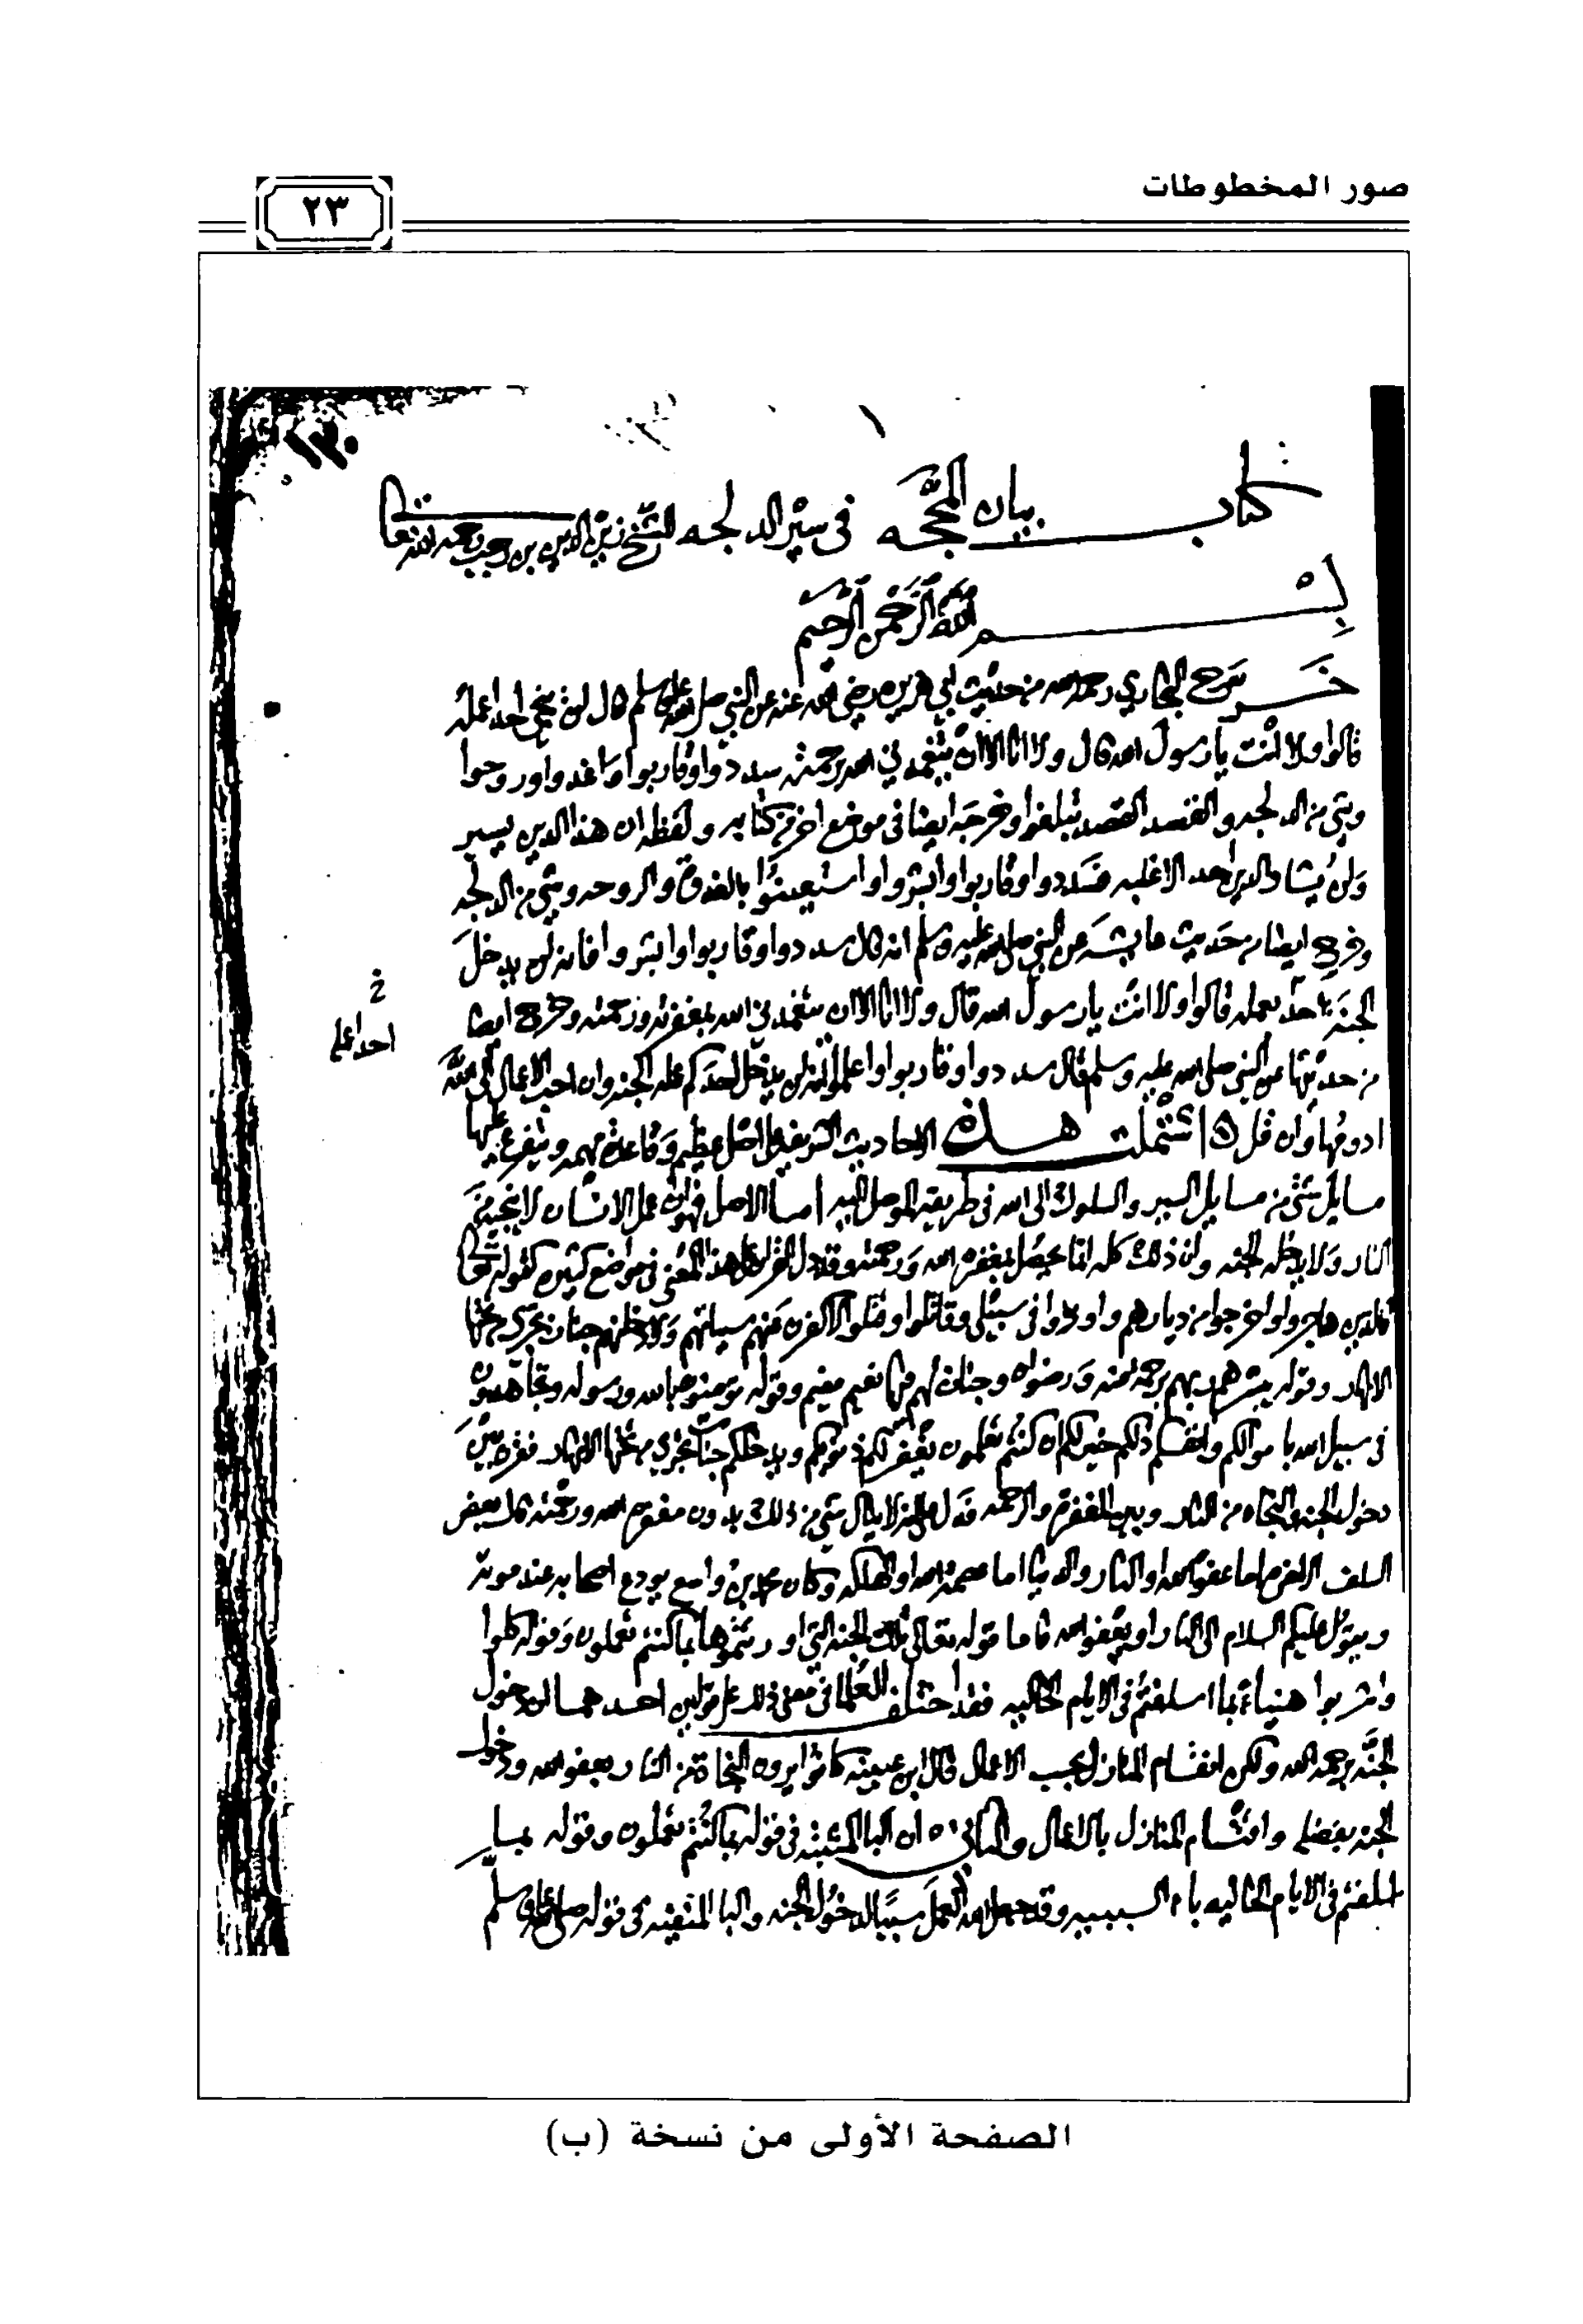 صور المخطوطات
٢٣
١٣٠
كتاب بيان المحجه في سير الدلجه للشيخ زين الدين بن رجب رحمه الله تعالى
بسم الله الرحمن الرحيم
خرج البخاري رحمه الله من حديث ابي هريره رضي الله عنه عن النبي صلى الله عليه وسلم قال لن ينجي احدا عمله
قالوا ولا انت يا رسول الله قال ولا انا الا ان يتغمدني الله برحمته سددوا وقاربوا واغدوا وروحوا
وشي من الدلجه والقصد القصد تبلغوا وخرجه ايضا في موضع اخر من كتابه ولفظه ان هذا الدين يسير
ولن يشاد الدين احد الا غلبه فسددوا وقاربوا وابشروا واستعينوا بالغدوة والروحه وشي من الدلجه
وخرج ايضا من حديث عايشه عن النبي صلى الله عليه وسلم انه قال سددوا وقاربوا وابشروا فانه لن يدخل
الجنة احدا بعمله قالوا ولا انت يا رسول الله قال ولا انا الا ان يتغمدني الله بمغفرته ورحمته وخرج ايضا
خ
احدا عمله
من حديثها عن النبي صلى الله عليه وسلم قال سددوا وقاربوا واعلموا انه لن يدخل احدكم عمله الجنه وان احب الاعمال الى الله
ادومها وان قل اشتملت هذه الاحاديث الشريفه على اصل عظيم وقاعدة مهمه ويتفرع عليها
مسايل شتى من مسايل السير والسلوك الى الله في طريقه الموصل اليه اما الاصل فهو ان عمل الانسان لا ينجيه من
النار ولا يدخله الجنه وان ذلك كله انما يحصل بمغفره الله ورحمته وقد دل القران على هذا المعنى في مواضع كثيره كقوله تعالى
فالذين هاجروا واخرجوا من ديارهم واوذوا في سبيلي وقاتلوا وقتلوا لاكفرن عنهم سياتهم ولادخلنهم جنات تجري من تحتها
الانهار وقوله يبشرهم ربهم برحمه منه ورضوان وجنات لهم فيها نعيم مقيم وقوله تومنون بالله ورسوله وتجاهدون
في سبيل الله باموالكم وانفسكم ذلكم خير لكم ان كنتم تعلمون يغفر لكم ذنوبكم ويدخلكم جنات تجري من تحتها الانهار فقرن بين
دخول الجنه والنجاه من النار وبين المغفرة والرحمه فدل على انه لا ينال شي من ذلك بدون مغفرة الله ورحمته قال بعض
السلف الاخرة اما عفو الله او النار والدنيا اما عصمة الله او الهلكه وكان محمد بن واسع يودع اصحابه عند موته
ويقول عليكم السلام الى النار او يعفو الله فاما قوله تعالى تلك الجنه التي اورثتموها بما كنتم تعملون وقوله كلوا
واشربوا هنيا بما اسلفتم في الايام الخاليه فقد اختلف العلما في معنى ذلك على قولين احدهما ان دخول
الجنه برحمه الله ولكن انقسام المنازل بحسب الاعمال قال ابن عيينه كانوا يرون النجاة من النار بعفو الله ودخول
الجنه بفضله واقتسام المنازل بالاعمال والثاني ان البا المثبته في قوله بما كنتم تعملون وقوله بما
اسلفتم في الايام الخاليه باء السببيه وقد جعل الله العمل سببا لدخول الجنه والبا المنفيه في قوله صلى الله عليه وسلم
الصفحة الأولى من نسخة (ب)